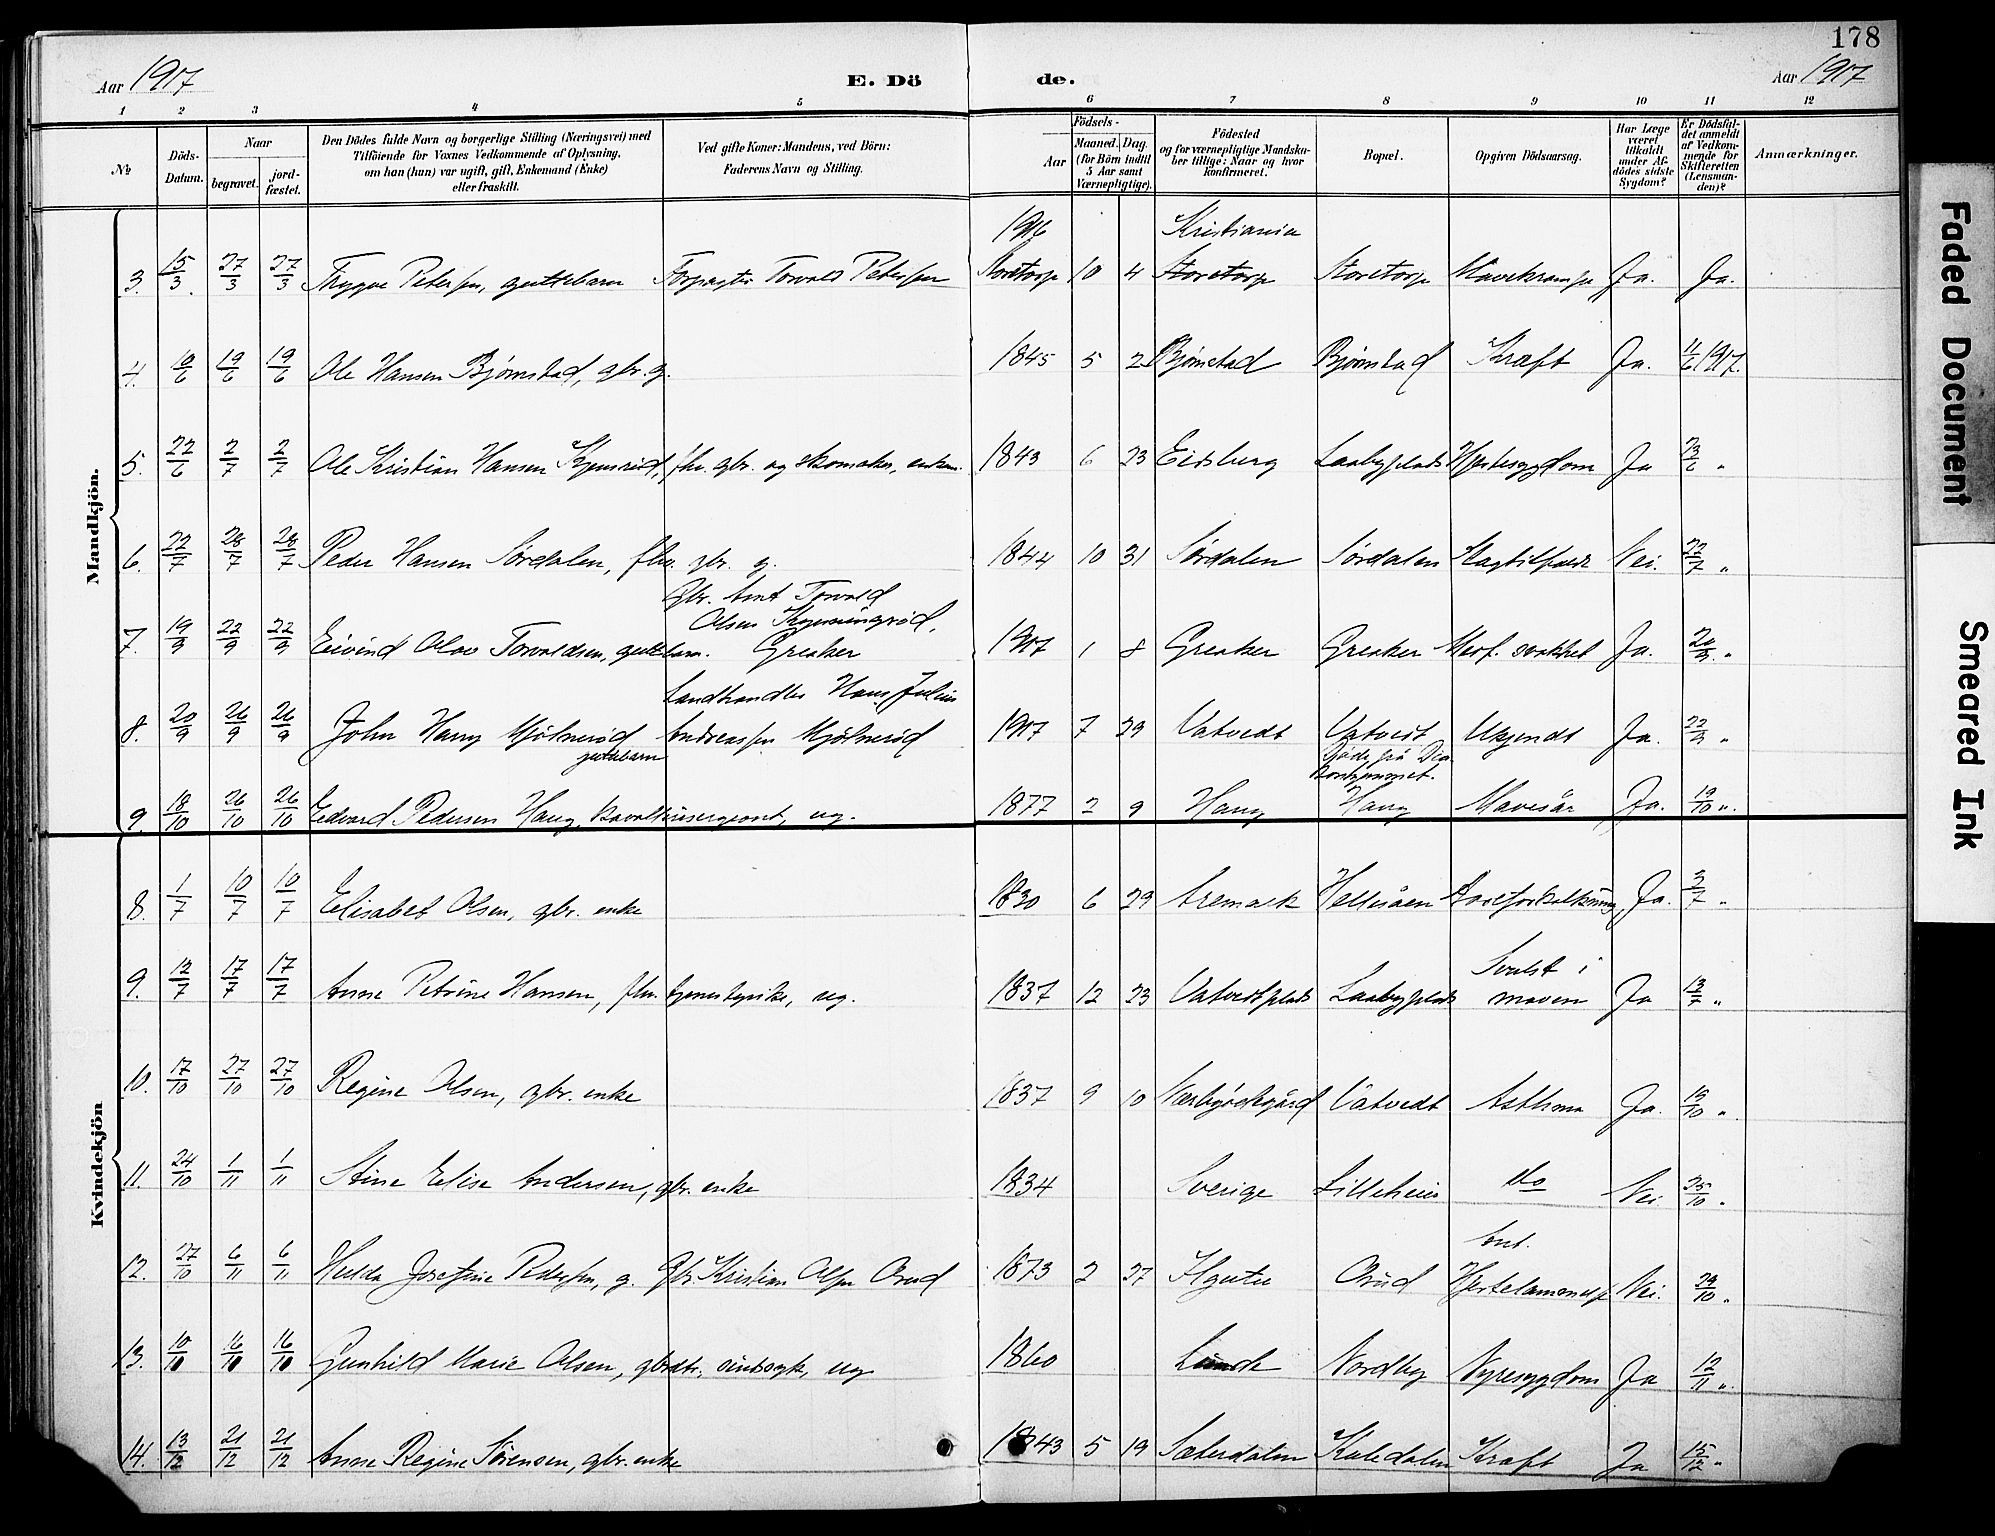 178
Aar 1917
E. Dö de.
Aar 1917
1 2 3 4 5 6 7 8 9 10 11 12
№
Döds-Datum.
Naar
begravet.
jord-fæstet.
Den Dödes fulde Navn og borgerlige Stilling (Næringsvei) med
Tilföiende for Voxnes Vedkommende af Oplysning,
om han (hun) var ugift, gift, Enkemand (Enke)
eller fraskilt.
Ved gifte Koner: Mandens, ved Börn:
Faderens Navn og Stilling.
Födsels-
Aar
Maaned. Dag.
(for Börn indtil
5 Aar samt
Værnepligtige).
Födested
og for værnepligtige Mandska-
ber tillige: Naar og hvor
konfirmeret.
Bopæl.
Opgiven Dödsaarsag.
Har Læge
været
tilkaldt
under Af-
dödes sidste
Sygdom?
Er Dödsfal-
det anmeldt
af Vedkom-
mende for
Skifteretten
(Lensman-
den)?
Anmærkninger.
Mandkjön.
1916 Kristiania
3. 15/3 27/3 27/3 Trygve Petersen, guttebarn Forpagter Torvald Petersen Storetorp 10 4 Storetorp Storetorp Mavekrampe Ja. Ja.
4. 10/6 19/6 19/6 Ole Hansen Bjørnstad, gbr. g. 1845 5 2 Bjørnstad Bjørnstad Kræft Ja. 11/6 1917.
5. 22/6 2/7 2/7 Ole Kristian Hansen fhv. gbr. og skomaker, enkem. 1843 6 23 Eidsberg Laabyplads Hjertesygdom Ja 23/6 "
6. 22/7 28/7 28/7 Peder Hansen Sørdalen, fhv. gbr. g. 1844 10 31 Sørdalen Sørdalen Slagtilfælde Nei. 22/7 "
Gbr. Arnt Torvald
Olsen
7. 19/9 22/9 22/9 Eivind Olav Torvaldsen, guttebarn. Greaker 1917 1 8 Greaker Greaker Medf. svakhet Ja. 20/9 "
Landhandler Hans Julius
8. 20/9 26/9 26/9 John Harry Mjölnerød Andreassen Mjölnerød 1917 7 29 Vatvedt Vatvedt Ukjendt Ja. 22/9 "
guttebarn
Døde på Dia-
konhjemmet.
9. 18/10 26/10 26/10 Edvard Pedersen Haug, kavallerisergeant, ug. 1877 2 9 Haug Haug Mavesår Ja. 19/10 "
Kvindekjön
8. 1/7 10/7 10/7 Elisabet Olsen, gbr. enke 1830 6 29 Aremark Helleråen Aareforkalkning Ja. 2/7 "
Svulst i
9. 12/7 17/7 17/7 Anne Petrine Hansen, fhv. tjenestepike, ug. 1837 12 23 Vatvedtplads Laabyplads maven Ja 13/7 "
10. 17/10 27/10 27/10 Regine Olsen, gbr. enke 1837 9 10 Vatvedt Asthma Ja. 19/10 "
11. 24/10 1/11 1/11 Stine Elise Andersen, gbr. enke 1834 Sverige Lilleheier do Nei 25/10 "
Ant.
12. 27/10 6/11 6/11 Hulda Josefine Pedersen, g. Gbr. Kristian Olsen Orud 1873 2 27 Orud Hjertelammelse Nei. 29/10 "
13. 10/10 16/10 16/10 Gunhild Marie Olsen, gbrdtr., sindssyk, ug 1860 Nordby Nyresygdom Ja 12/11 "
14. 13/12 21/12 21/12 Anne Regine Sørensen, gbr. enke 1843 5 19 Sæterdalen Kuledalen Kræft Ja 15/12 "
Faded Document
Smeared Ink